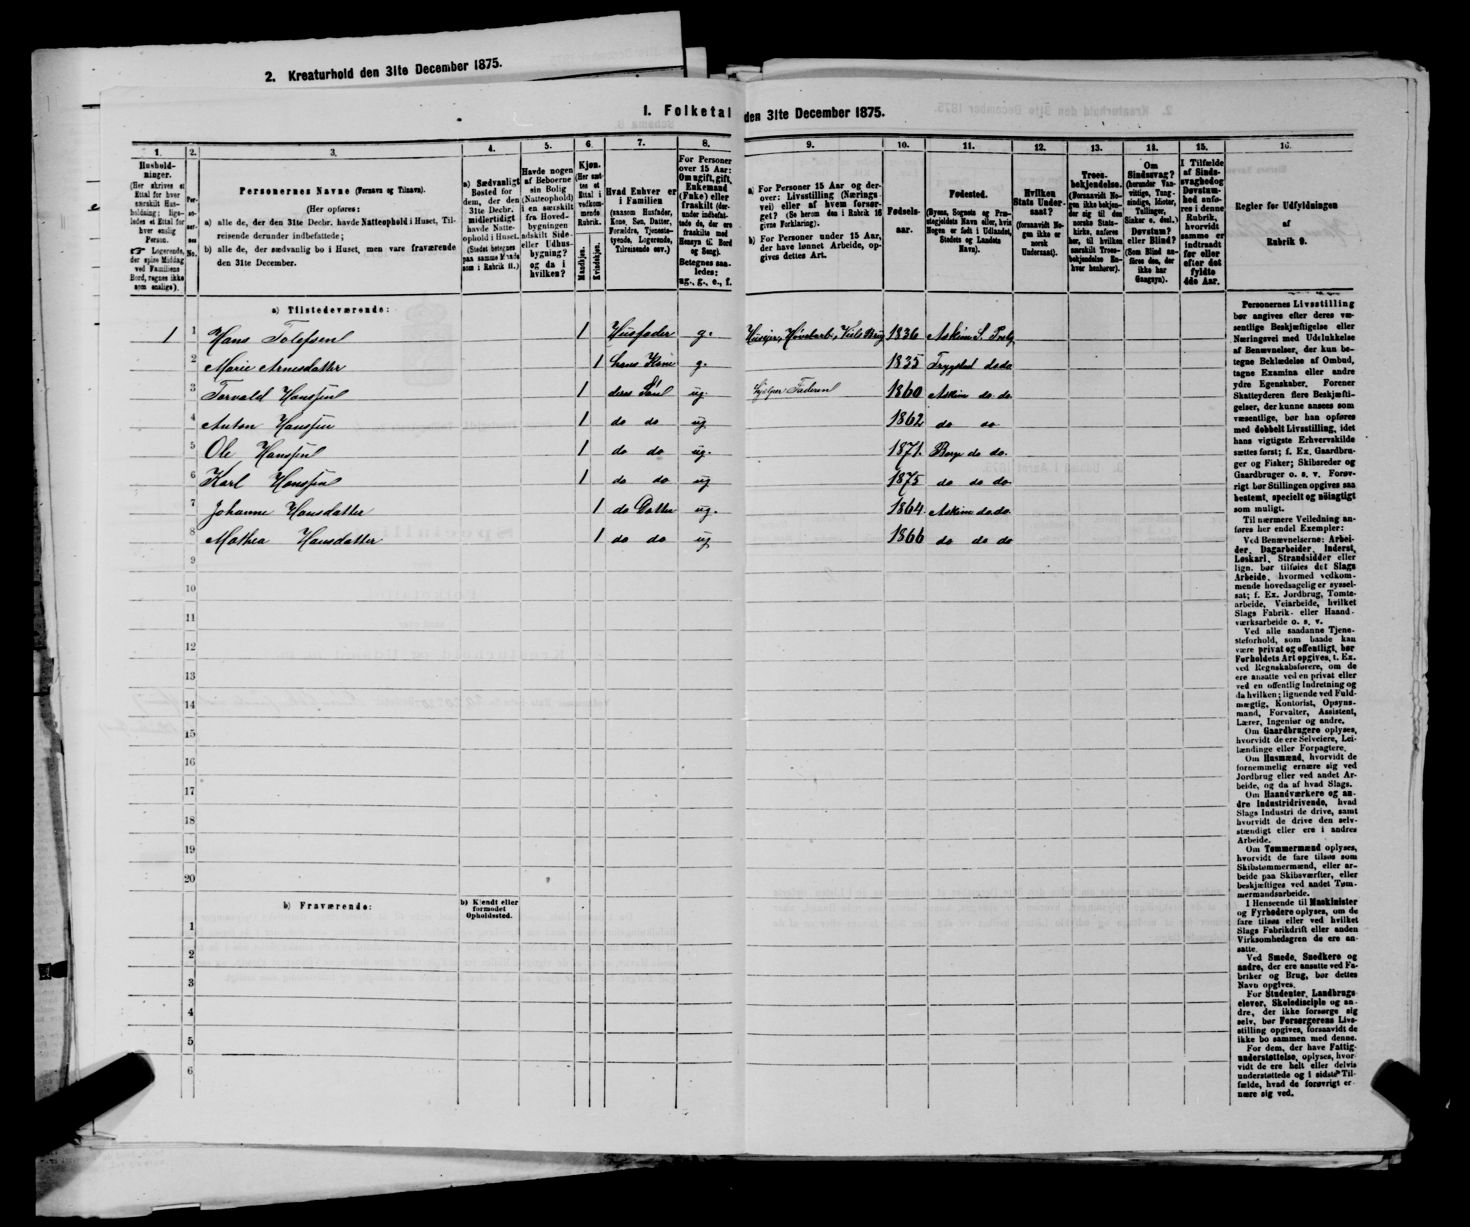 2. Kreaturhold den 31te December 1875.
1. Folketal den 31te December 1875.
1. 2. 3. 4. 5. 6. 7. 8. 9. 10. 11. 12. 13. 14. 15. 16.
Hushold-
ninger.
(Her skrives et
Ettal for hver
særskilt Hus-
holdning; lige-
ledes et Ettal for
hver enslig
Person.
☞ Logerende,
der spise Middag
ved Familiens
Bord, regnes ikke
som enslige).
Per-
soner-
nes
No.
Personernes Navne (Fornavn og Tilnavn).
(Her opføres:
a) alle de, der den 31te Decbr. havde Natteophold i Huset, Til-
reisende derunder indbefattede;
b) alle de, der sædvanlig bo i Huset, men vare fraværende
den 31te December.
a) Sædvanligt
Bosted for
dem, der den
31te Decbr.
midlertidigt
havde Natte-
ophold i Huset.
(Stedet betegnes
paa samme Maade
som i Rubrik 11.)
Havde nogen
af Beboerne
sin Bolig
(Natteophold)
i en særskilt
fra Hoved-
bygningen
adskilt Side-
eller Udhus-
bygning?
og da i
hvilken?
Kjøn.
(Her sæt-
tes et
Ettal i
vedkom-
mende
Rubrik.
Mandkjøn.
Kvindekjøn.
Hvad Enhver er
i Familien
(saasom Husfader,
Kone, Søn, Datter,
Forældre, Tjeneste-
tyende, Logerende,
Tilreisende osv.)
For Personer
over 15 Aar:
Om ugift, gift,
Enkemand
(Enke) eller
fraskilt (der-
under indbefat-
tede de, der ere
fraskilte med
Hensyn til Bord
og Seng).
Betegnes saa-
ledes:
ug., g., e., f.
a) For Personer 15 Aar og der-
over: Livsstilling (Nærings-
vei) eller af hvem forsør-
get? (Se herom den i Rubrik 16
givne Forklaring).
b) For Personer under 15 Aar,
der have lønnet Arbeide, op-
gives dettes Art.
Fødsels-
aar.
Fødested.
(Byens, Sognets og Præ-
stegjeldets Navn eller, hvis
Nogen er født i Udlandet,
Stedets og Landets
Navn).
Hvilken
Stats Under-
saat?
(forsaavidt No-
gen ikke er
norsk
Undersaat).
Troes-
bekjendelse.
(Forsaavidt No-
gen ikke bekjen-
der sig til den
norske Stats-
kirke, anføres
her, til hvilken
særskilt Troes-
bekjendelse En-
hver henhører).
Om
Sindssvag?
(herunder Van-
vittige, Tung-
sindige, Idioter,
Tullinger,
Sinker o. desl.)
Døvstum?
eller Blind?
(Som Blind an-
føres den, der
ikke har
Gangsyn).
I Tilfælde
af Sinds-
svaghed og
Døvstum-
hed anfø-
res i denne
Rubrik,
hvorvidt
samme er
indtraadt
før eller
efter det
fyldte
4de Aar.
Regler for Udfyldningen
af
Rubrik 9.
a) Tilstedeværende:
1 1 Hans Tolefsen 1 Husfader g. 1836 Askim
2 Marie Arnesdatter 1 hans Kone g. 1835 Trygstad do do
3 Torvald Hanssen 1 deres Søn ug. hjelper Faderen 1860 Askim do do
4 Anton Hanssen 1 do do ug 1862 do do
5 Ole Hanssen 1 do do ug. 1871. do do
6 Karl Hanssen 1 do do ug 1875 do do do
7 Johanne Hansdatter 1 do Datter ug. 1864. Askim do do.
8 Mathea Hansdatter 1 do do ug 1866 do do do
9
10
11
12
13
14
15
16
17
18
19
20
b) Fraværende: b) Kjendt eller
formodet
Opholdssted.
1
2
3
4
5
6
Personernes Livsstilling
bør angives efter deres væ-
sentlige Beskjæftigelse eller
Næringsvei med Udelukkelse
af Benævnelser, der kun be-
tegne Beklædelse af Ombud,
tagne Examina eller andre
ydre Egenskaber. Forener
Skatteyderen flere Beskjæfti-
gelser, der kunne ansees som
væsentlige, bør han opføres
med dobbelt Livsstilling, idet
hans vigtigste Erhvervskilde
sættes først; f. Ex. Gaardbru-
ger og Fisker; Skibsreder og
Gaardbruger o. s. v. Forøv-
rigt bør Stillingen opgives saa
bestemt, specielt og nøiagtigt
som muligt.
Til nærmere Veiledning an-
føres her endel Exempler:
Ved Benævnelserne: Arbei-
der, Dagarbeider, Inderst,
Løskarl, Strandsidder eller
lign. bør tilføies det Slags
Arbeide, hvormed vedkom-
mende hovedsagelig er syssel-
sat; f. Ex. Jordbrug, Tomte-
arbeide, Veiarbeide, hvilket
Slags Fabrik- eller Haand-
værksarbeide o. s. v.
Ved alle saadanne Tjene-
steforhold, som baade kan
være privat og offentligt, bør
Forholdets Art opgives, t. Ex.
ved Regnskabsførere, om de
ere ansatte ved en privat eller
ved en offentlig Indretning og
da hvilken; lignende ved Fuld-
mægtig, Kontorist, Opsyns-
mand, Forvalter, Assistent,
Lærer, Ingeniør og andre.
Om Gaardbrugere oplyses,
hvorvidt de ere Selveiere, Lei-
lændinge eller Forpagtere.
Om Husmænd, hvorvidt de
fornemmelig ernære sig ved
Jordbrug eller ved andet Ar-
beide, og da af hvad Slags.
Om Haandværkere og an-
dre Industridrivende, hvad
Slags Industri de drive, samt
hvorvidt de drive den selv-
stændigt eller ere i andres
Arbeide.
Om Tømmermænd oplyses,
hvorvidt de fare tilsøs som
Skibstømmermænd, eller ar-
beide paa Skibsværfter, eller
beskjæftiges ved andet Tøm-
mermandsarbeide.
I Henseende til Maskinister
og Fyrbødere oplyses, om de
fare tilsøs eller ved hvilket
Slags Fabrikdrift eller anden
Virksomhedsgren de ere an-
satte.
Ved Smede, Snedkere og
andre, der ere ansatte ved Fa-
briker og Brug, bør dettes
Navn opgives.
For Studenter, Landbrugs-
elever, Skoledisciple og an-
dre, der ikke forsørge sig
selv, bør Forsørgerens Livs-
stilling opgives, forsaavidt de
ikke bo sammen med denne.
For dem, der have Fattig-
understøttelse, oplyses, hvor-
vidt de ere helt eller delvis
understøttede og i sidste Til-
fælde, hvad de forøvrigt er-
nære sig ved.